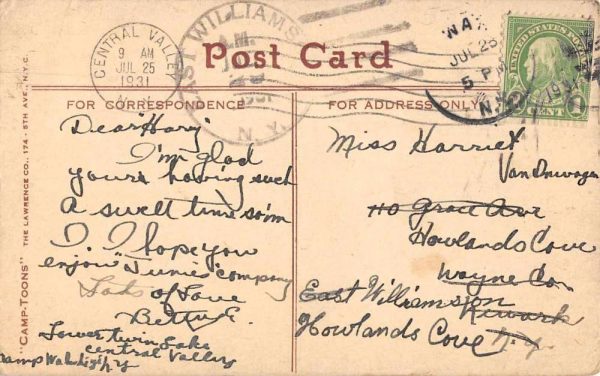 CENTRAL VALLEY
9 AM
JUL 25
1931
EAST WILLIAMSON
A.M.
1931
N.Y.
JUL 25
5 P
1931
UNITED STATES POSTAGE
1 CENT 1
Post Card
FOR CORRESPONDENCE
FOR ADDRESS ONLY
"CAMP-TOONS" THE LAWRENCE CO., 174 - 5TH AVE., N.Y.C.
Dear "Hary"
I'm glad
you're having such
a swell time so'm
I. I hope you
enjoy "Junies" company
Lots of Love
Betty E.
Lower Twin Lake
Central Valley
Miss Harriet
110 Grace Ave
Howlands Cove
Wayne Co.
East Williamson
Newark
Howlands Cove N.Y.